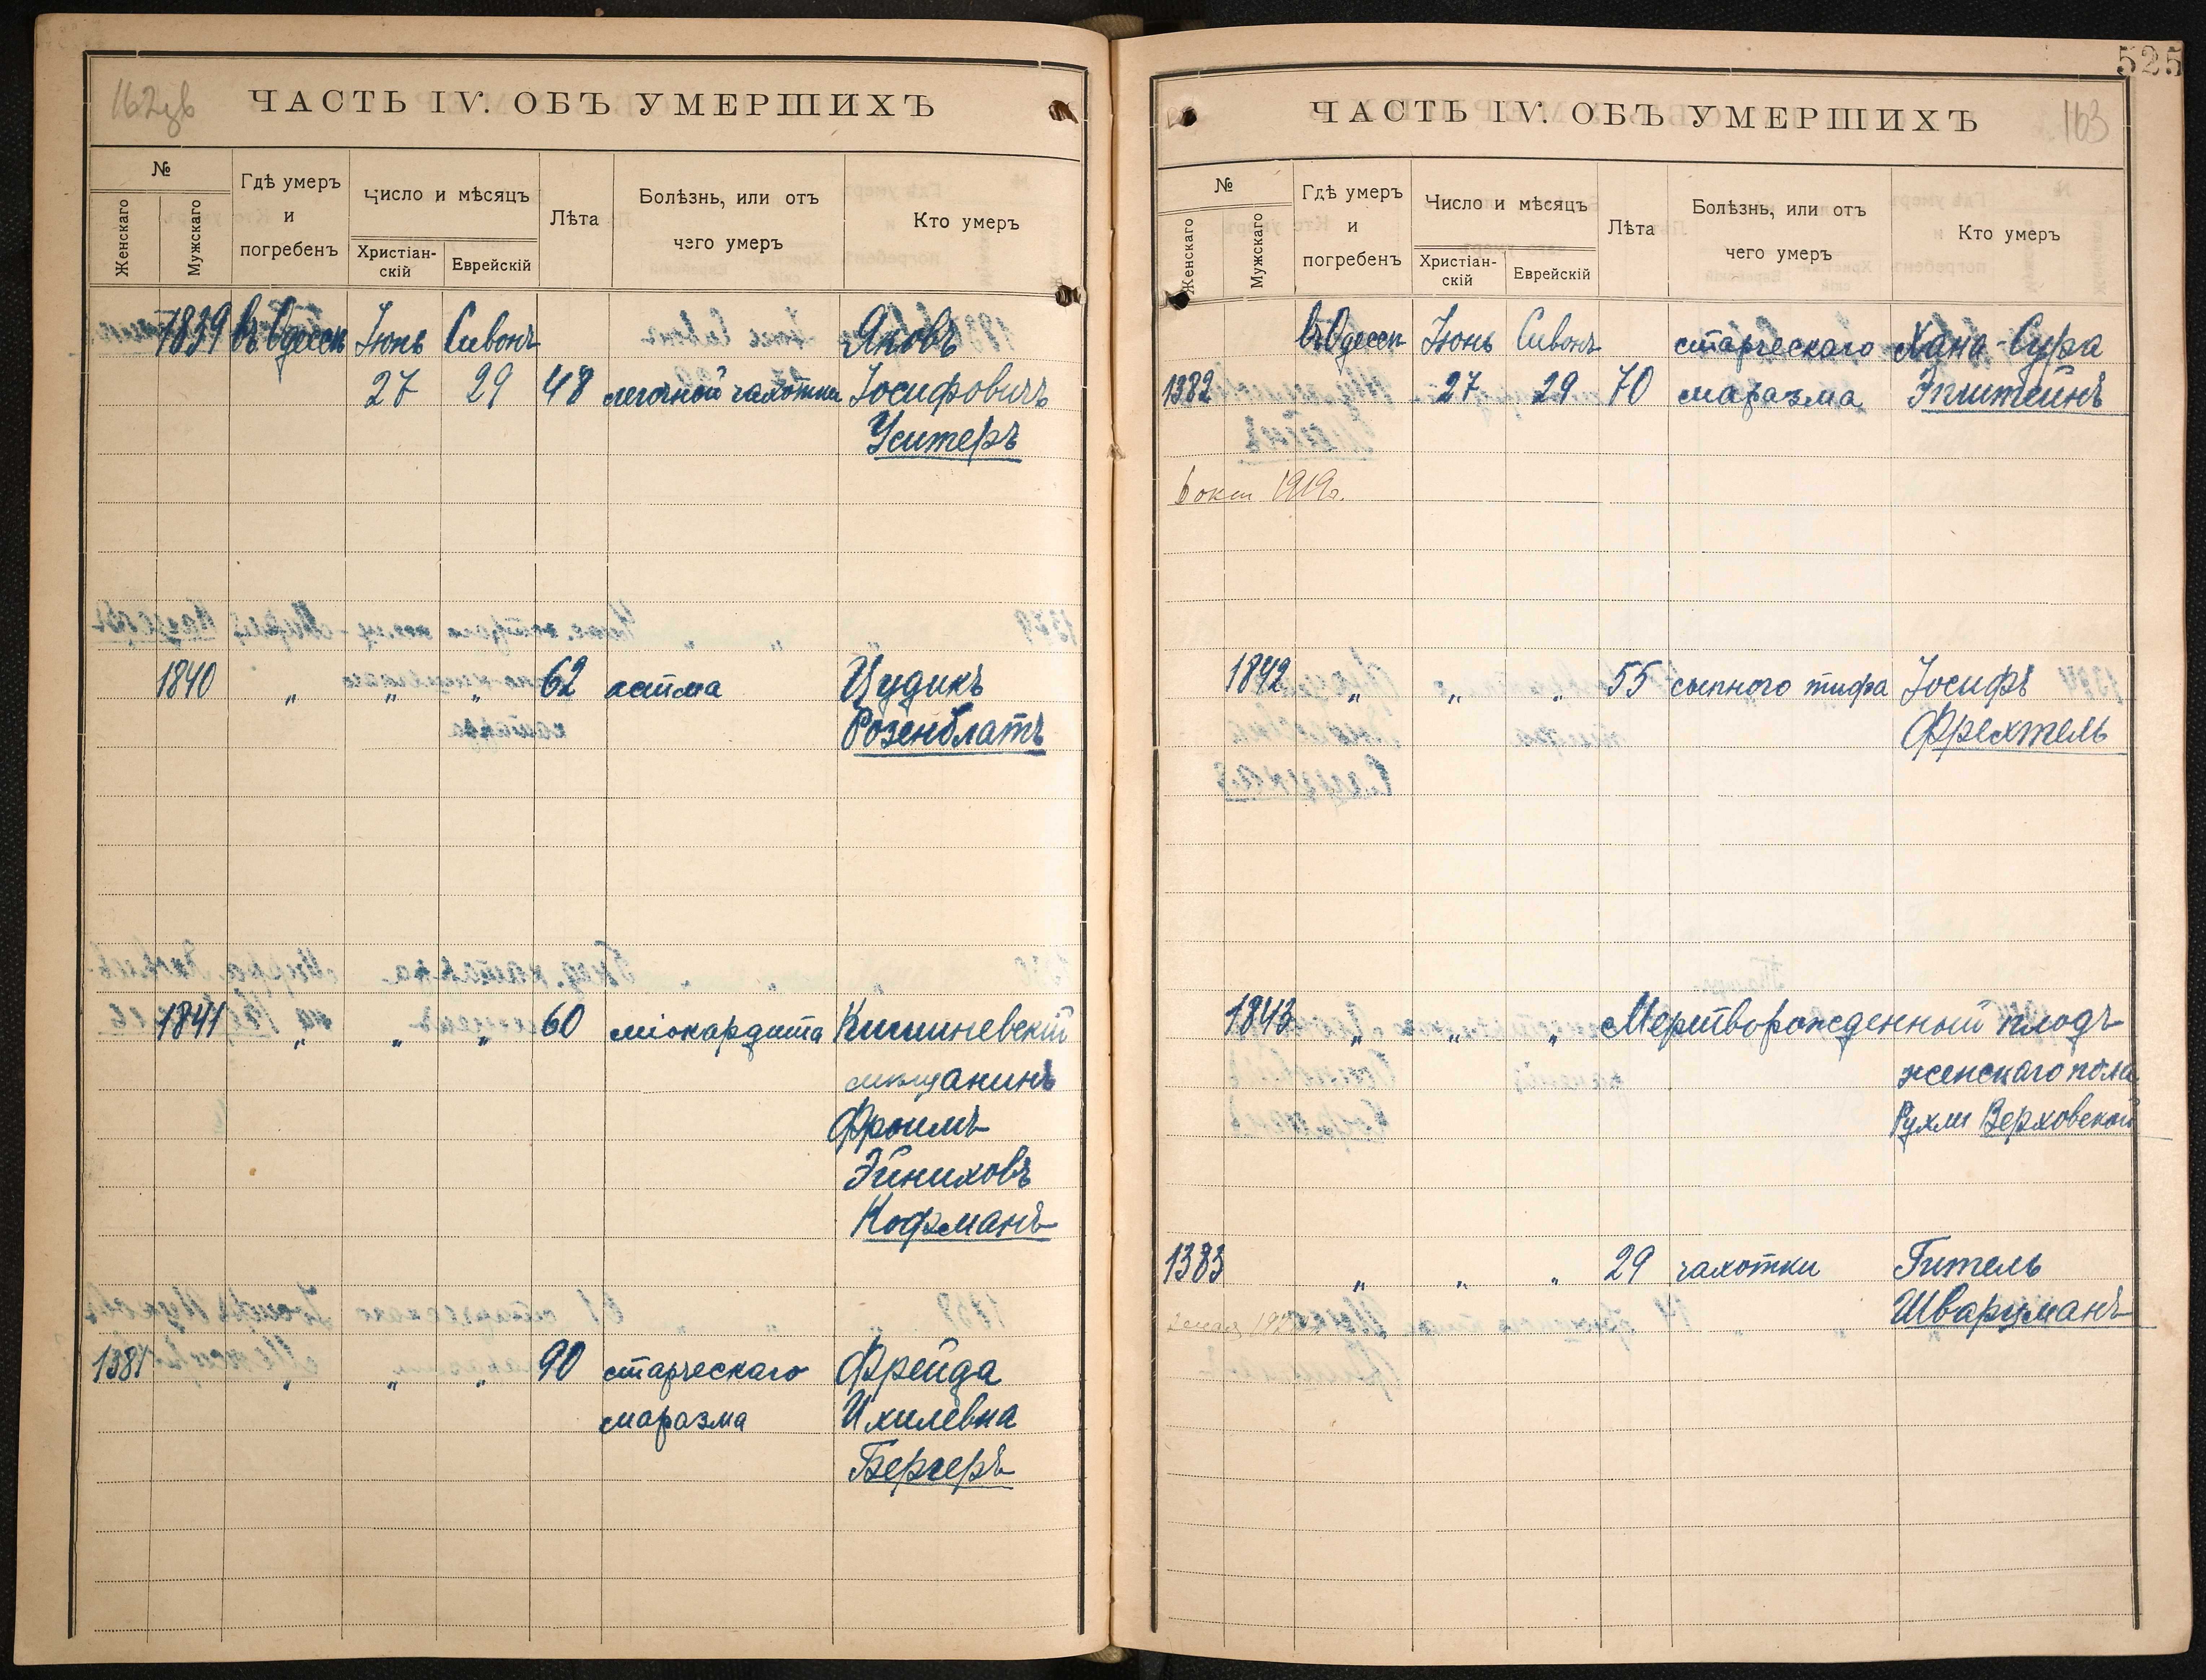 ЧАСТЬ IV. ОБЪ УМЕРШИХЪ
№
Женскаго
Мужскаго
Гдѣ умеръ
и
погребенъ
Число и мѣсяцъ
Христіан-
скій
Еврейскій
Лѣта
Болѣзнь, или отъ
чего умеръ
Кто умеръ
1839 въ Одессѣ Іюнь Сивонъ Яковъ
27 29 48 легочной чахотки Іосифовичъ
Уситеръ
1840 " " " 62 астма Цудикъ
Розенблатъ
1841 " " " 60 міокардита Кишиневскій
мѣщанинъ
Фроимъ
Эйниховъ
Кофманъ
1381 " " " 90 старческаго Фрейда
маразма Ихилевна
Бергеръ
525
ЧАСТЬ IV. ОБЪ УМЕРШИХЪ
163
№
Женскаго
Мужскаго
Гдѣ умеръ
и
погребенъ
Число и мѣсяцъ
Христіан-
скій
Еврейскій
Лѣта
Болѣзнь, или отъ
чего умеръ
Кто умеръ
въ Одессѣ Іюнь Сивонъ старческаго Хана-Сура
1382 27 29 70 маразма Эпштейнъ
6 окт 1919г.
1842 " " " 55 сыпного тифа Іосифъ
Фрехтель
1843 " " " Мертворожденный плодъ
женскаго пола
Рухли Верховской
1383 " " " 29 чахотки Гитель
Шварцманъ